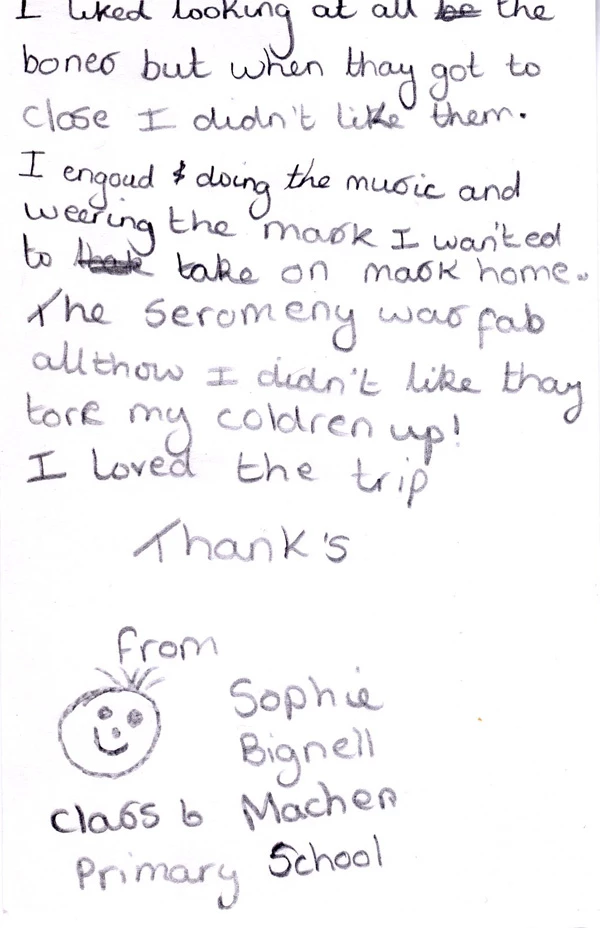 I liked looking at all be the
bones but when thay got to
close I didn't like them.
I engoud & doing the music and
weering the mask I wan'ted
to take on mask home.
The seromeny was fab
allthow I didn't like thay
tore my coldren up!
I Loved the trip
Thank's
from
Sophie
Bignell
class 6 Machen
Primary School